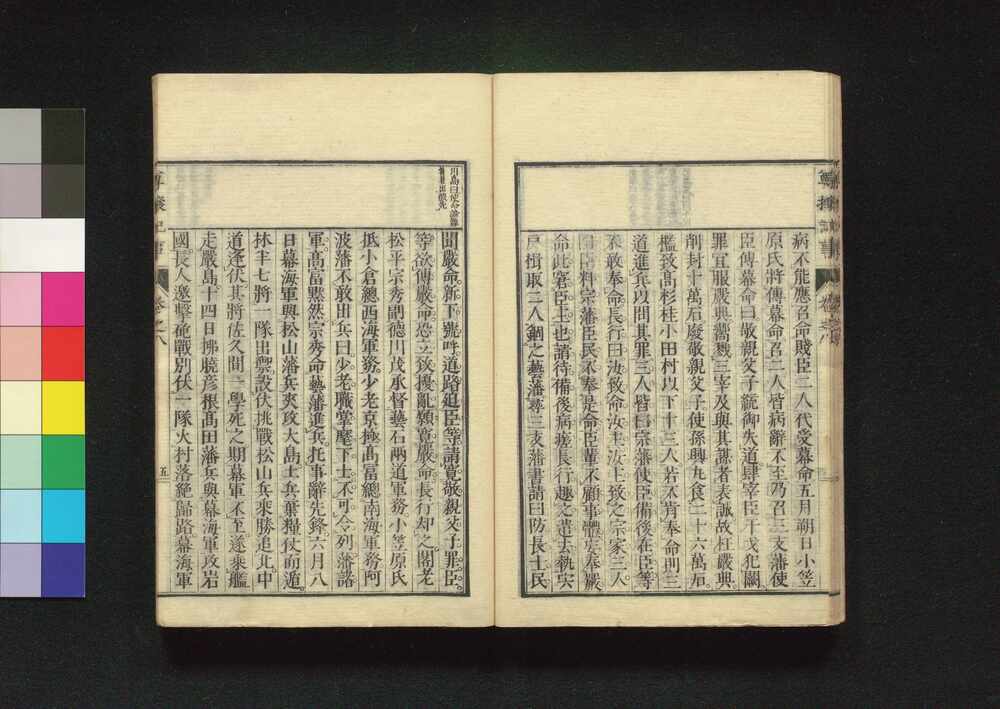 病不能應召命賤臣二人代受幕命五月朔日小笠
原氏將傳幕命召二人皆病辭不至乃召三支藩使
臣傳幕命曰敬親父子統御失道肆宰臣干戈犯闕
罪宜服嚴典嚮戮三宰及與其謀者表誠故枉嚴典
削封十萬石廢敬親父子使孫興丸食二十六萬石
檻致高杉桂小田村以下十三人若不肯奉命則三
道進兵以問其罪三人皆曰宗藩使臣備後在臣等
不敢奉命長行曰汝致命汝主汝主致之宗家三人
曰 料宗藩臣民不奉是命臣輩不顧事體妄奉嚴
命此害臣主也請待備後病瘥長行趣之遣去執宍
戸楫取二人錮之藝藩尋三支藩書請曰防長士民
五
川島曰使命論難
聞嚴命新下號呼道路追臣等請寬敬親父子罪臣
等欲傳嚴命恐立致擾亂額寬嚴命長行却之閣老
松平宗秀嗣德川茂承督藝石兩道軍務小笠原氏
抵小倉總西海軍務少老京極高富總南海軍務阿
波藩不敢出兵曰少老職掌麾下士不可令列藩諸
軍高富黙然宗秀命藝藩進兵托事辭先鋒六月八
日幕海軍與松山藩兵夾攻大島士兵棄糧仗而遁
林半七將一隊出禦設伏挑戰松山兵乘勝追北中
道逢伏其將佐久間一學死之期幕軍不至遂乘艦
走嚴島十四日拂曉彥根高田藩兵與幕海軍攻岩
國長人邀擊砲戰別伏一隊火村落絕歸路幕海軍